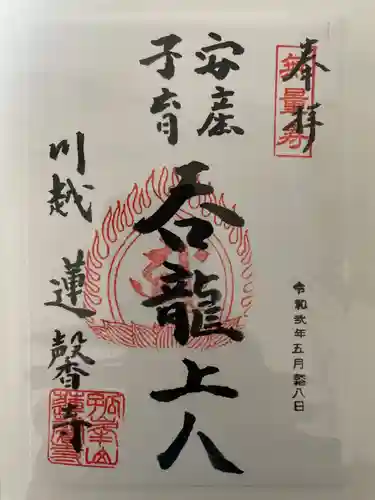 奉拝
無量寿
安産
子育
呑龍上人
川越 蓮馨寺
令和弐年五月廿八日